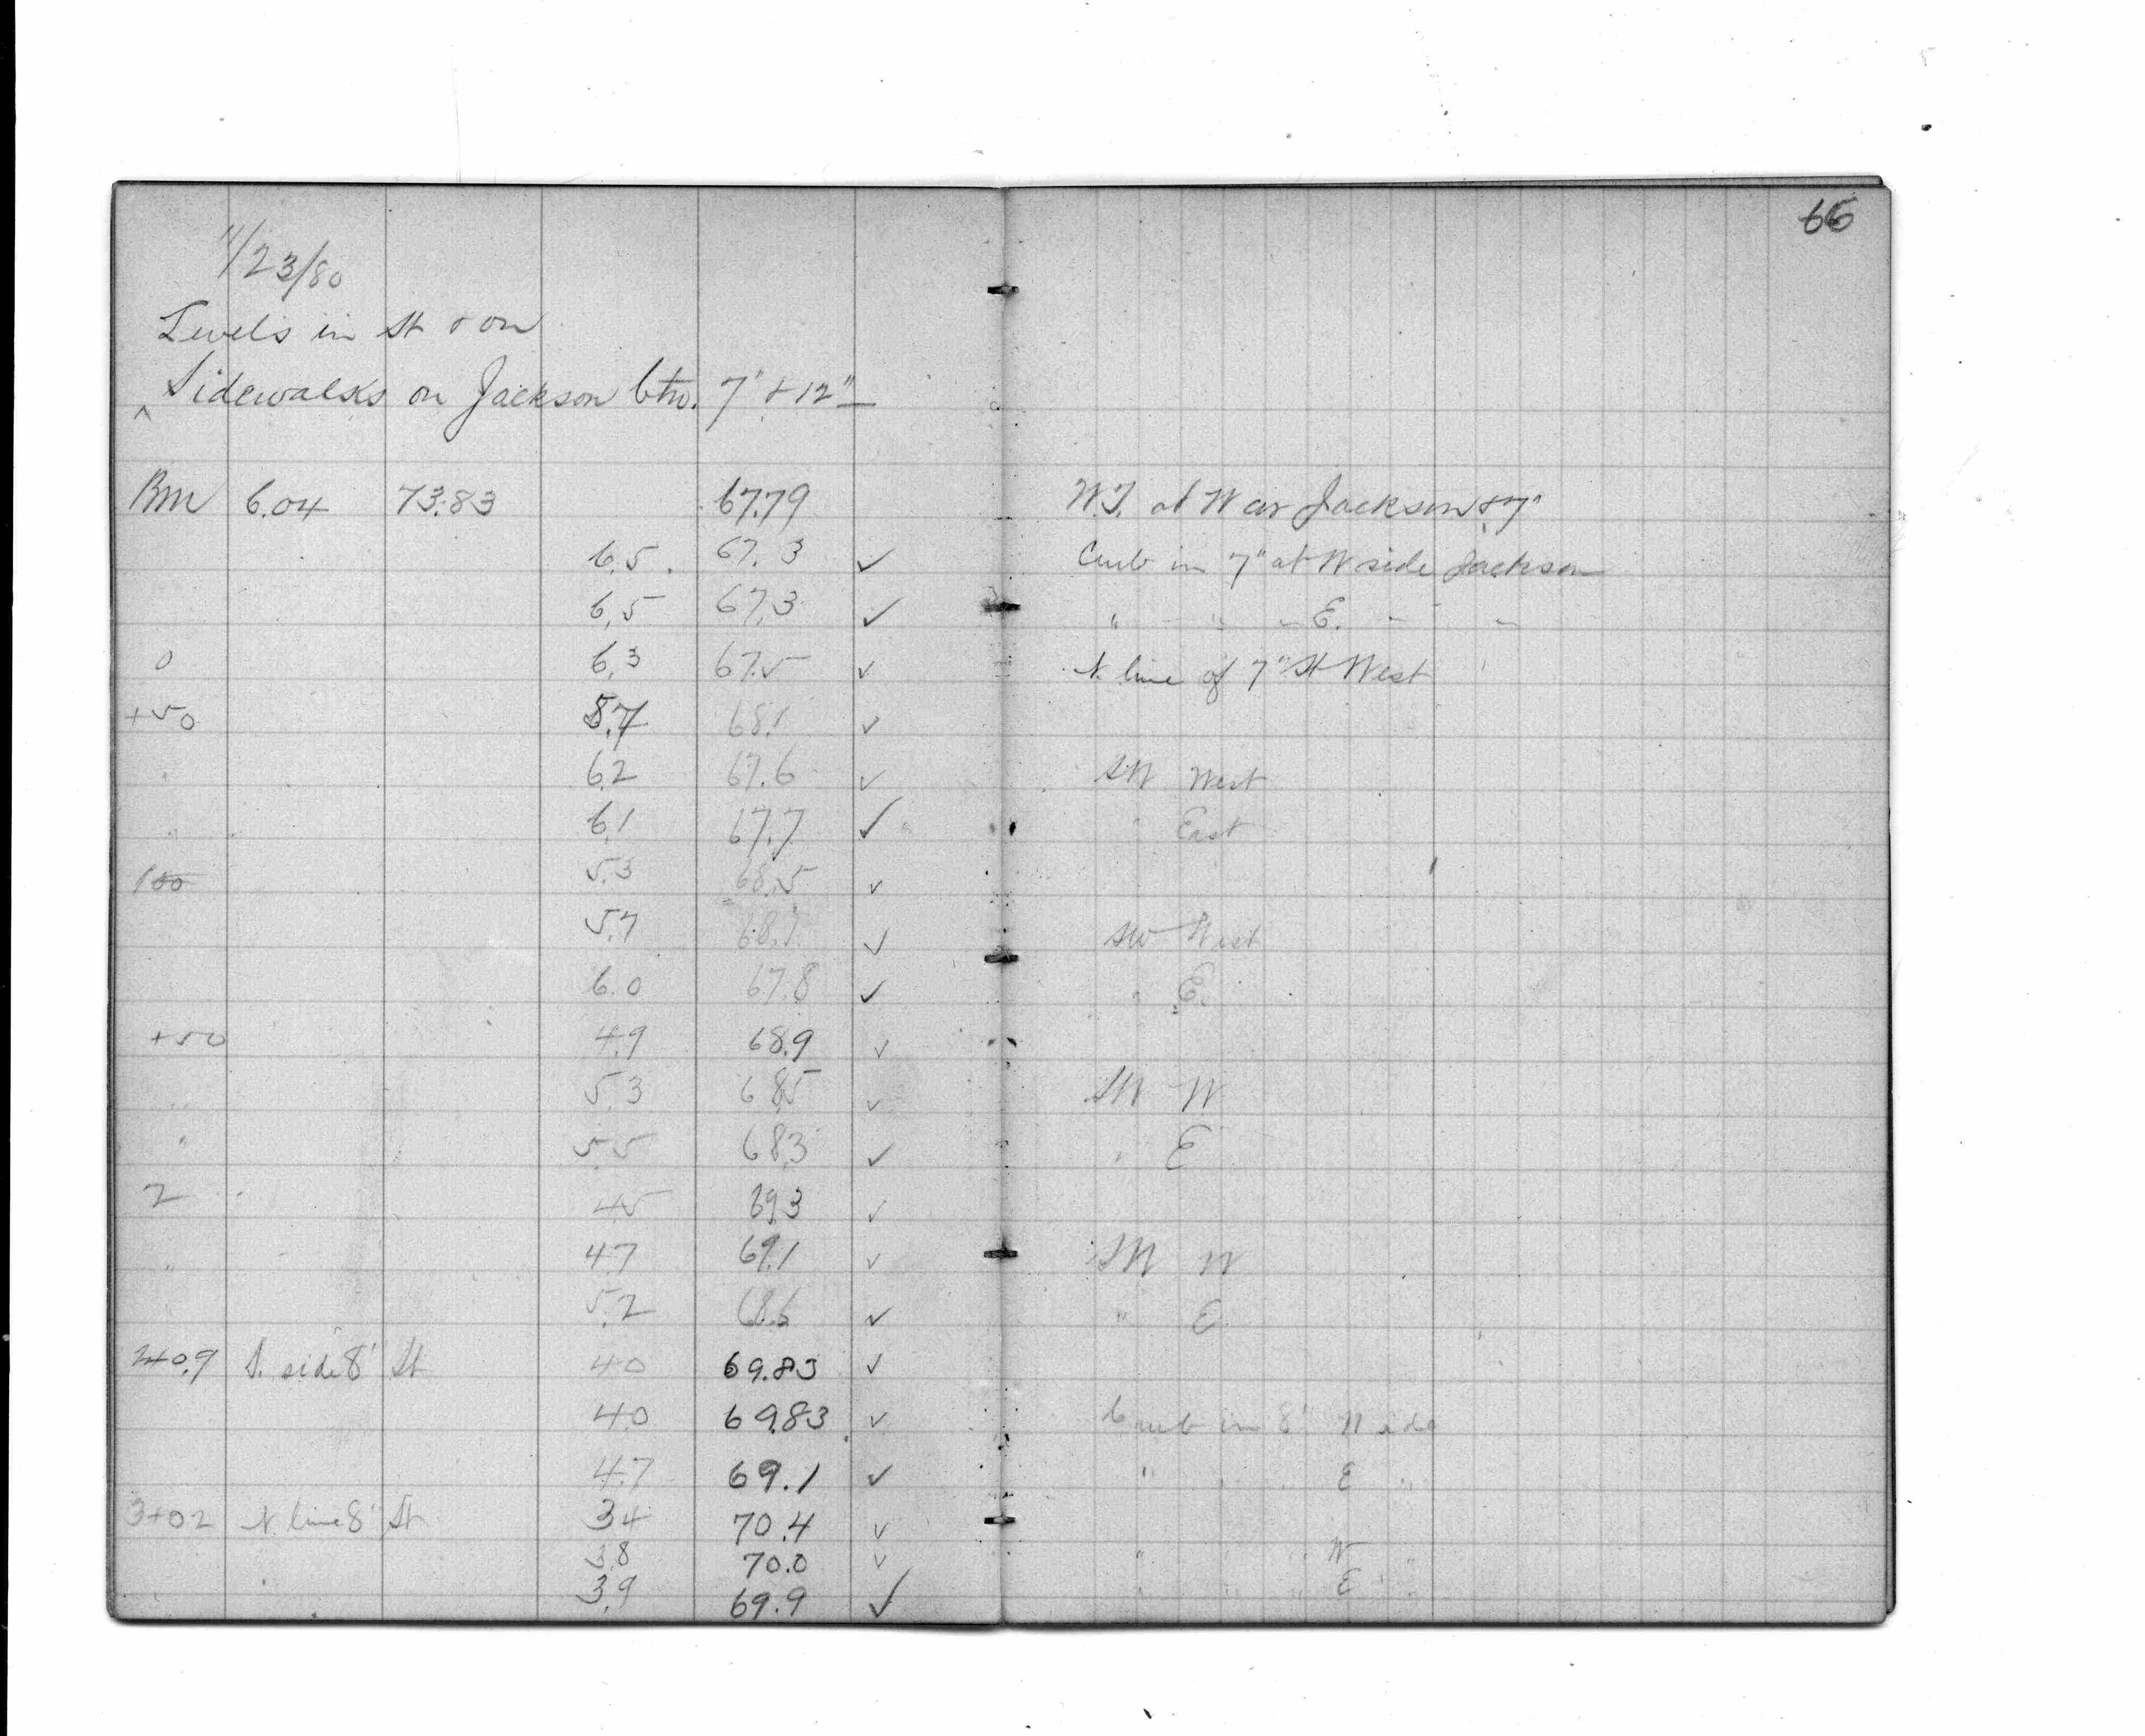 66
11/23/80
Levels in St & on
^ Sidewalks on Jackson btw. 7" & 12"
BM 6.04 73.83 67.79 W.T. at W cor Jackson & 7"
6.5 67.3 ✓ Curb in 7" at W side Jackson
6.5 67.3 ✓ " " " E. " "
0 6.3 67.5 ✓ N. line of 7" St West
+50 5.7 68.1 ✓
" 6.2 67.6 ✓ SW West
" 6.1 67.7 ✓ " East
100 5.3 68.5 ✓
5.7 68.1 ✓ SW West
6.0 67.8 ✓ " E.
+50 4.9 68.9 ✓
" 5.3 68.5 ✓ SW W
" 5.5 68.3 ✓ " E
2 4.5 69.3 ✓
" 4.7 69.1 ✓ SW W
" 5.2 68.6 ✓ " E
2+0.9 S. side 8" St 4.0 69.83 ✓
4.0 69.83 ✓ Curb in 8" W side
4.7 69.1 ✓ " " " E "
3+02 N. line 8" St 3.4 70.4 ✓
3.8 70.0 ✓ " " W "
3.9 69.9 ✓ " " E "